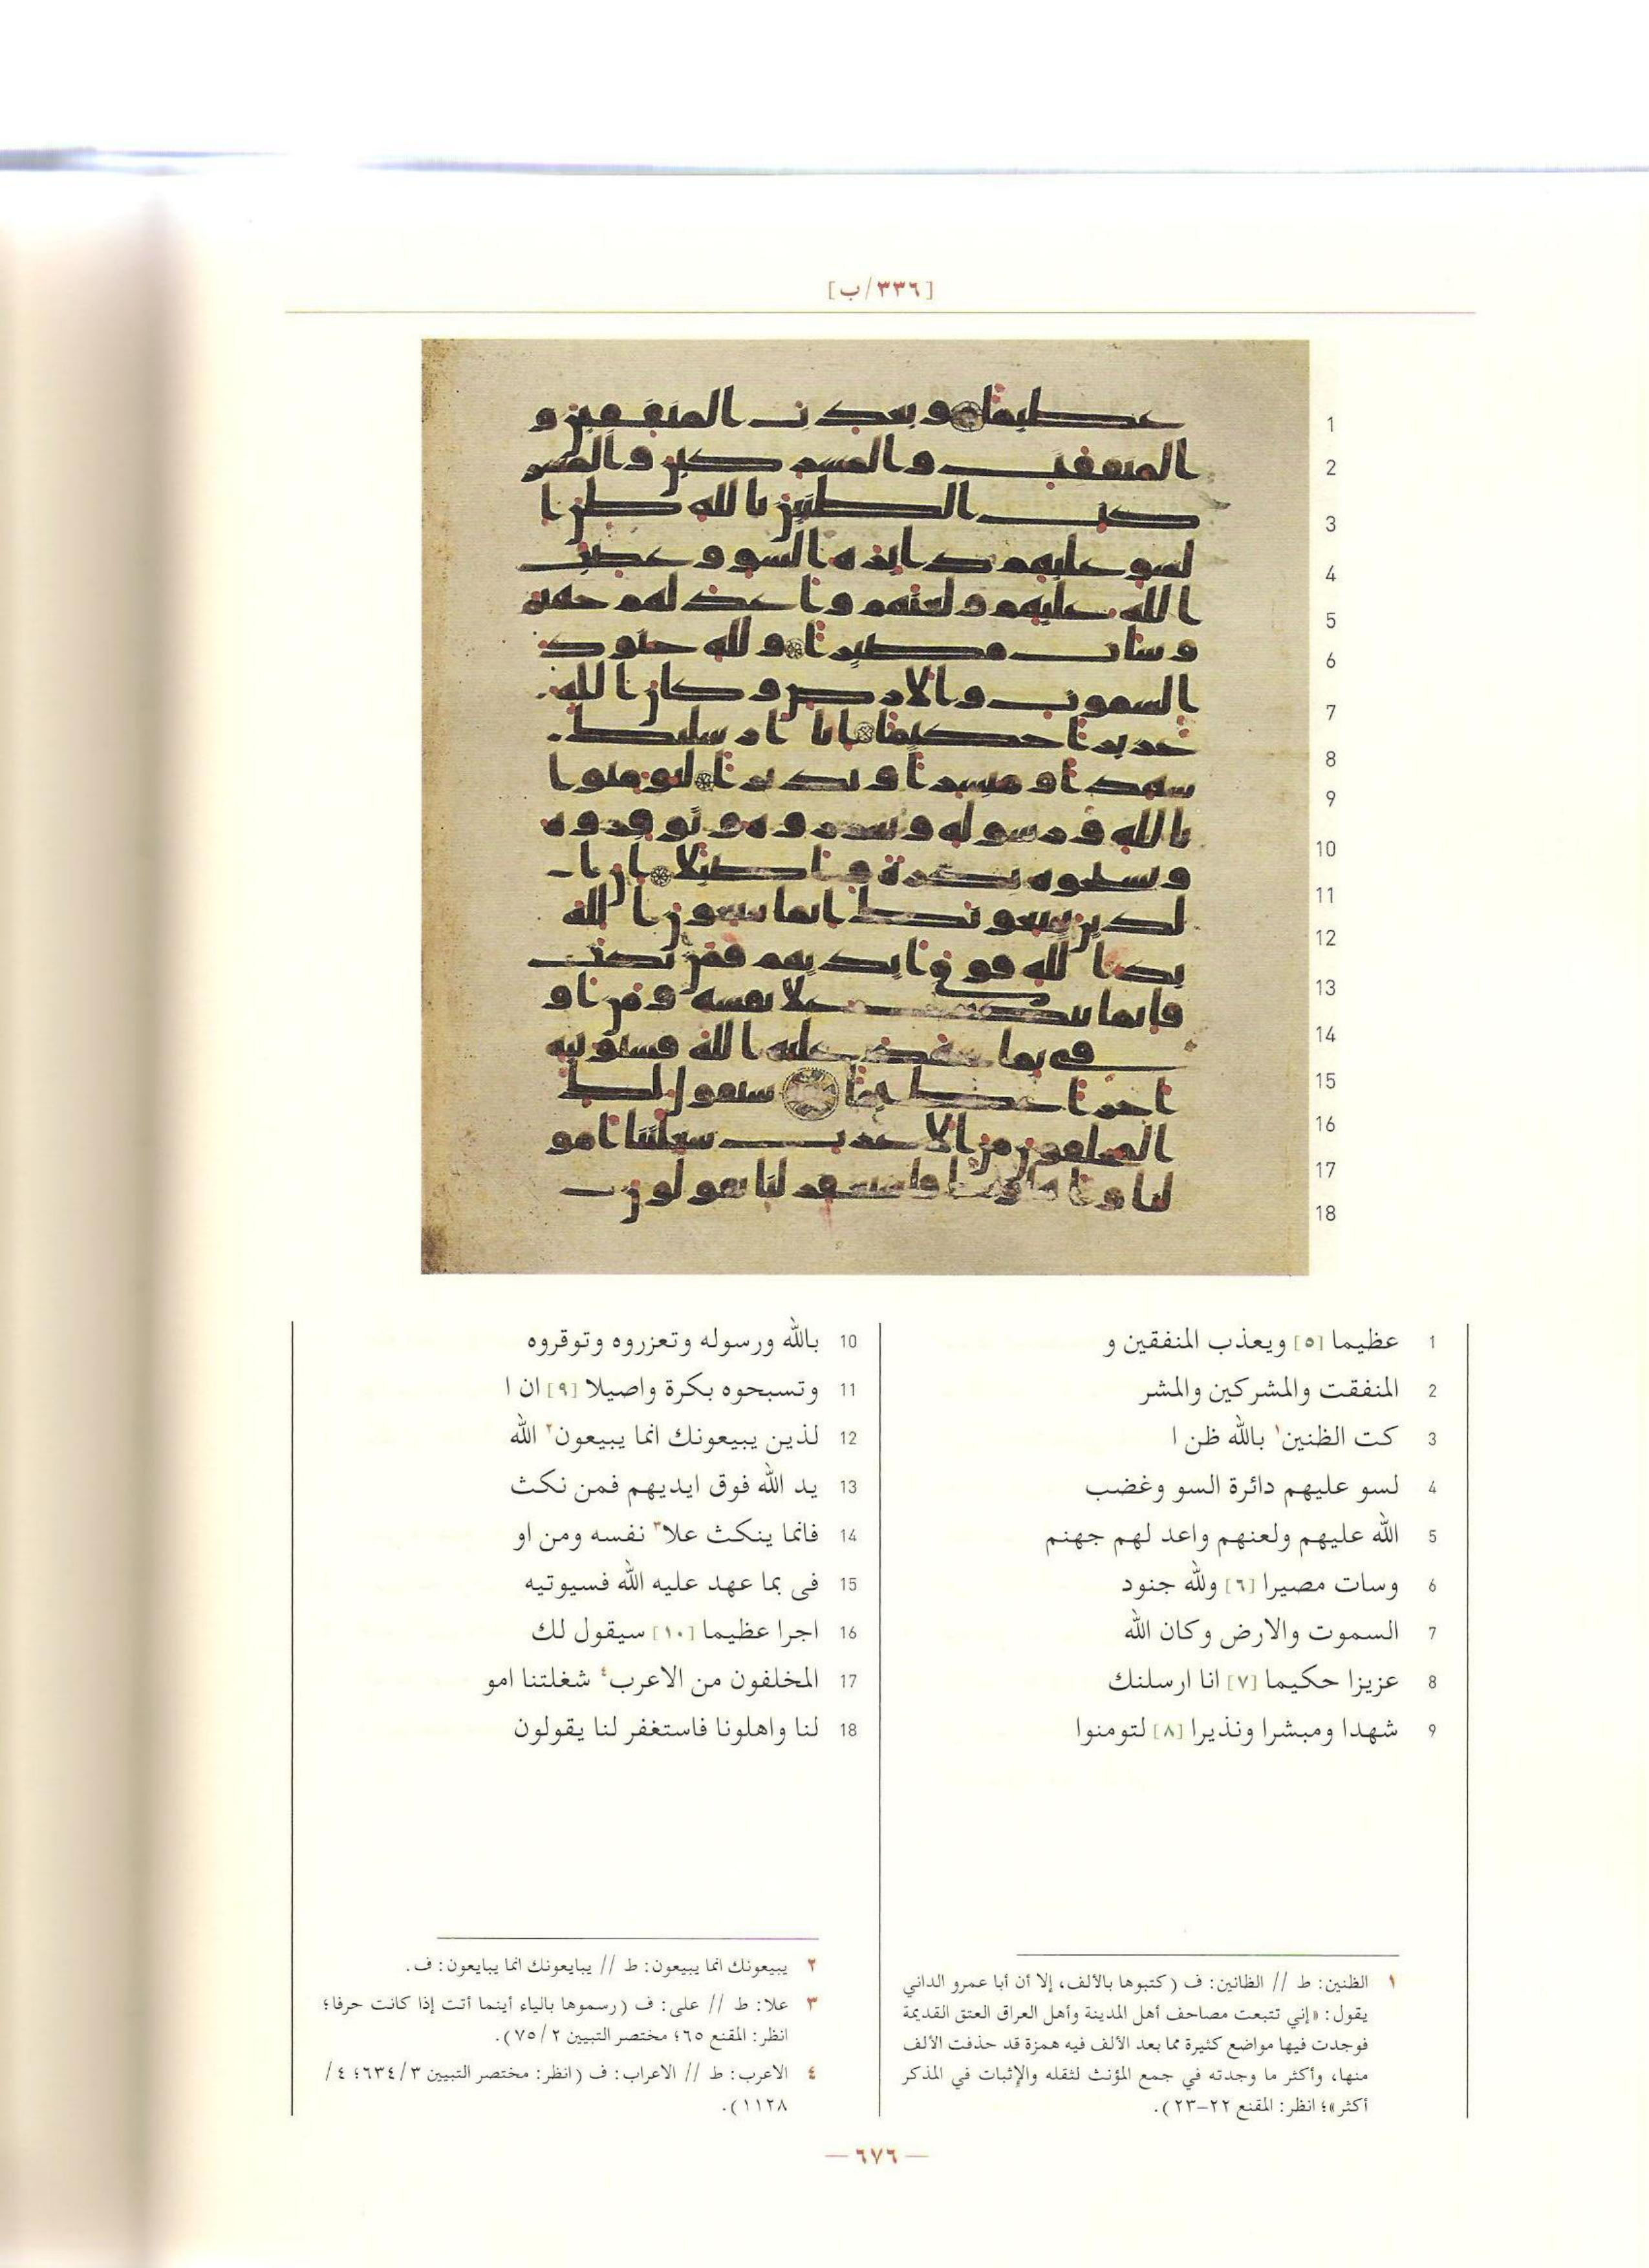 [٣٣٦/ب]
1 عظيما [٥] ويعذب المنفقين و
2 المنفقت والمشركين والمشر
3 كت الظنين١ بالله ظن ا
4 لسو عليهم دائرة السو وغضب
5 الله عليهم ولعنهم واعد لهم جهنم
6 وسات مصيرا [٦] ولله جنود
7 السموت والارض وكان الله
8 عزيزا حكيما [٧] انا ارسلنك
9 شهدا ومبشرا ونذيرا [٨] لتومنوا
10 بالله ورسوله وتعزروه وتوقروه
11 وتسبحوه بكرة واصيلا [٩] ان ا
12 لذين يبيعونك انما يبيعون٢ الله
13 يد الله فوق ايديهم فمن نكث
14 فانما ينكث علا٣ نفسه ومن او
15 فى بما عهد عليه الله فسيوتيه
16 اجرا عظيما [١٠] سيقول لك
17 المخلفون من الاعرب٤ شغلتنا امو
18 لنا واهلونا فاستغفر لنا يقولون
١ الظنين: ط // الظانين: ف (كتبوها بالألف، إلا أن أبا عمرو الداني
يقول: «إني تتبعت مصاحف أهل المدينة وأهل العراق العتق القديمة
فوجدت فيها مواضع كثيرة مما بعد الألف فيه همزة قد حذفت الألف
منها، وأكثر ما وجدته في جمع المؤنث لثقله والإثبات في المذكر
أكثر»؛ انظر: المقنع ٢٢-٢٣).
٢ يبيعونك انما يبيعون: ط // يبايعونك انما يبايعون: ف.
٣ علا: ط // على: ف (رسموها بالياء أينما أتت إذا كانت حرفا؛
انظر: المقنع ٦٥؛ مختصر التبيين ٢/٧٥).
٤ الاعرب: ط // الاعراب: ف (انظر: مختصر التبيين ٣/٦٣٤؛ ٤/
١١٢٨).
— ٦٧٦ —